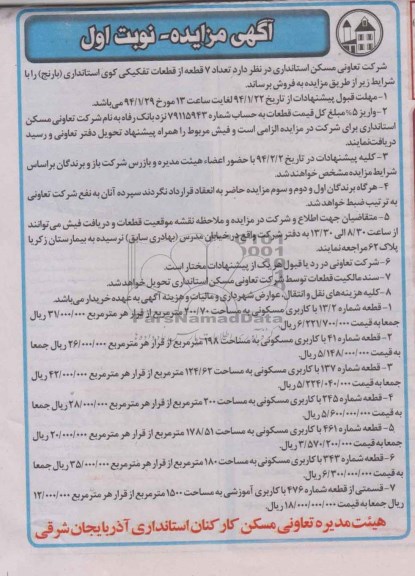 آگهی مزایده- نوبت اول
شرکت تعاونی مسکن استانداری در نظر دارد تعداد ۷ قطعه از قطعات تفکیکی کوی استانداری (بارنج) را با
شرایط زیر از طریق مزایده به فروش برساند.
۱- مهلت قبول پیشنهادات از تاریخ ۹۴/۱/۲۲ لغایت ساعت ۱۳ مورخ ۹۴/۱/۲۹ می‌باشد.
۲- واریز ۵٪ مبلغ کل قیمت قطعات به حساب شماره ۷۹۱۱۵۹۴۳ نزد بانک رفاه به نام شرکت تعاونی مسکن
استانداری برای شرکت در مزایده الزامی است و فیش مربوط را همراه پیشنهاد تحویل دفتر تعاونی و رسید
دریافت نمایند.
۳- کلیه پیشنهادات در تاریخ ۹۴/۲/۲ با حضور اعضاء هیئت مدیره و بازرس شرکت باز و برندگان بر اساس
شرایط مزایده مشخص خواهند شد.
۴- هر گاه برندگان اول و دوم و سوم مزایده حاضر به انعقاد قرارداد نگردند سپرده آنان به نفع شرکت تعاونی
به ترتیب ضبط خواهد شد.
۵- متقاضیان جهت اطلاع و شرکت در مزایده و ملاحظه نقشه موقعیت قطعات و دریافت فیش می‌توانند
از ساعت ۸/۳۰ الی ۱۳/۳۰ به دفتر شرکت واقع در خیابان مدرس (بهادری سابق) نرسیده به بیمارستان زکریا
پلاک ۶۲ مراجعه نمایند.
۶- شرکت تعاونی در رد یا قبول هر یک از پیشنهادات مختار است.
۷- سند مالکیت قطعات توسط شرکت تعاونی مسکن استانداری تحویل خواهد شد.
۸- کلیه هزینه‌های نقل و انتقال، عوارض شهرداری و مالیات و هزینه آگهی به عهده خریدار می‌باشد.
۱- قطعه شماره ۱۳/۲ با کاربری مسکونی به مساحت ۲۰۰/۷۰ مترمربع از قرار هر مترمربع ۳۱/۰۰۰/۰۰۰ ریال
جمعا به قیمت ۶/۲۲۱/۷۰۰/۰۰۰ ریال.
۲- قطعه شماره ۴۱ با کاربری مسکونی به مساحت ۱۹۸ مترمربع از قرار هر مترمربع ۲۶/۰۰۰/۰۰۰ ریال جمعا
به قیمت ۵/۱۴۸/۰۰۰/۰۰۰ ریال.
۳- قطعه شماره ۱۳۷ با کاربری مسکونی به مساحت ۱۲۴/۶۲ مترمربع از قرار هر مترمربع ۴۲/۰۰۰/۰۰۰ ریال
جمعا به قیمت ۵/۲۳۴/۰۴۰/۰۰۰ ریال.
۴- قطعه شماره ۲۴۵ با کاربری مسکونی به مساحت ۲۰۰ مترمربع از قرار هر مترمربع ۲۸/۰۰۰/۰۰۰ ریال جمعا
به قیمت ۵/۶۰۰/۰۰۰/۰۰۰ ریال.
۵- قطعه شماره ۴۶۱ با کاربری مسکونی به مساحت ۱۷۸/۵۱ مترمربع از قرار هر مترمربع ۲۰/۰۰۰/۰۰۰ ریال
جمعا به قیمت ۳/۵۷۰/۲۰۰/۰۰۰ ریال.
۶- قطعه شماره ۳۴۳ با کاربری مسکونی به مساحت ۱۸۰ مترمربع از قرار هر مترمربع ۳۵/۰۰۰/۰۰۰ ریال جمعا
به قیمت ۶/۳۰۰/۰۰۰/۰۰۰ ریال.
۷- قسمتی از قطعه شماره ۴۷۶ با کاربری آموزشی به مساحت ۱۵۰۰ مترمربع از قرار هر مترمربع ۱۲/۰۰۰/۰۰۰
ریال جمعا به قیمت ۱۸/۰۰۰/۰۰۰/۰۰۰ ریال.
هیئت مدیره تعاونی مسکن کارکنان استانداری آذربایجان شرقی
ParsNamadData